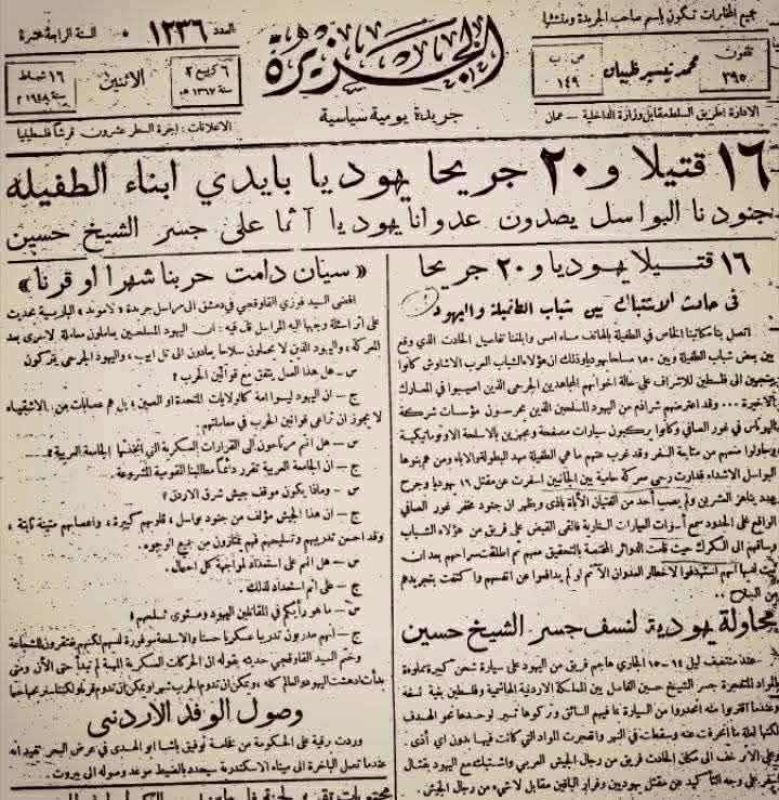 جميع المخابرات تكون باسم صاحب الجريدة ومنشئها
تلفون
٣٩٥
محمد تيسير ظبيان
ص ب
١٤٩
الادارة طريق السلط مقابل وزارة الداخلية — عمان
الجزيرة
جريدة يومية سياسية
العدد ١٢٣٦ • السنة الرابعة عشرة
٦ ربيع ٢
سنة ١٣٦٧ هـ
الاثنين
١٦ شباط
سنة ١٩٤٨ م
الاعلانات : اجرة السطر عشرون قرشا فلسطينيا
١٦ قتيلا و ٢٠ جريحا يهوديا بايدي ابناء الطفيله
جنودنا البواسل يصدون عدوانا يهوديا آثما على جسر الشيخ حسين
١٦ قتيلا يهوديا و ٢٠ جريحا
في حادث الاشتباك بين شباب الطفيلة واليهود
اتصل بنا مكاتبنا الخاص في الطفيلة بالهاتف مساء امس وابلغنا تفاصيل الحادث الذي وقع
بين بعض شباب الطفيلة وبين ١٥٠ مسلحا يهوديا وذلك ان هؤلاء الشباب العرب الاشاوس كانوا
متجهين الى فلسطين للاشراف على حالة اخوانهم المجاهدين الجرحى الذين اصيبوا في المعارك
الاخيرة ... وقد اعترضهم شراذم من اليهود المسلحين الذين يحرسون مؤسسات شركة
البوتاس في غور الصافي وكانوا يركبون سيارات مصفحة ومجهزين بالاسلحة الاوتوماتيكية
وحاولوا منعهم من متابعة السفر وقد غرب عنهم ما هي الطفيلة مهد البطولة والاباء ومن هم بنوها
البواسل الاشداء فدارت رحى معركة حامية بين الجانبين اسفرت عن مقتل ١٦ يهوديا وجرح
عدد يناهز العشرين ولم يصب أحد من الفتيان الأباة بأذى ويظهر ان جنود مخفر غور الصافي
الواقع على الحدود سمع أصوات العيارات النارية فالقى القبض على فريق من هؤلاء الشباب
وساقهم الى الكرك حيث قامت الدوائر المختصة بالتحقيق معهم ثم اطلقت سراحهم بعد ان
ثبت لديها أنهم استهدفوا لاخطار العدوان الآثم لو لم يدافعوا عن انفسهم واكتفت بتجريدهم
من السلاح ..
محاولة يهودية لنسف جسر الشيخ حسين
عند منتصف ليل ١٤ – ١٥ الجاري هاجم فريق من اليهود على سيارة شحن كبيرة مملوءة
بالمواد المتفجرة جسر الشيخ حسين الفاصل بين المملكة الاردنية الهاشمية وفلسطين بنية نسفه
وعندما اقتربوا منه انحدروا من السيارة بما فيهم السائق وتركوها تسير لوحدها نحو الهدف
لكنها لعلة ما انحرفت عنه وسقطت في النهر وانفجرت المواد التي كانت فيها دون اي أذى.
وعلى الأثر خف الى مكان الحادث فريق من رجال الجيش العربي واشتبك مع اليهود بقتال
اسفر على وجه التأكيد عن مقتل يهوديين وفرار الباقين مقابل لا شيء من رجال الجيش.
« سيان دامت حربنا شهرا او قرنا »
افضى السيد فوزي القاوقجي في دمشق الى مراسل جريدة «لاموند» الباريسية بحديث
على اثر اسئلة وجهها اليه المراسل قال فيه : ان اليهود المسلحين يعاملون معاملة الاسرى بعد
المعركة، واليهود الذين لا يحملون سلاحا يعادون الى تل ابيب، واليهود الجرحى يتركون
س – هل هذا العمل يتفق مع قوانين الحرب؟
ج – ان اليهود ليسوا امة كالولايات المتحدة او الصين ؛ بل هم عصابات من الاشقياء
لا يجوز ان تراعى قوانين الحرب في معاملتهم.
س – هل انتم مرتاحون الى القرارات العسكرية التي اتخذتها الجامعة العربية؟
ج – ان الجامعة العربية تقرر دائما مطالبنا القومية المشروعة.
س – وماذا يكون موقف جيش شرق الاردن؟
ج – ان هذا الجيش مؤلف من جنود بواسل، قلوبهم كبيرة، واعصابهم متينة ثابتة،
وقد احسن تدريبهم وتسليحهم فهم ممتازون من جميع الوجوه.
س – هل انتم على استعداد لمواجهة كل احتمال.
ج – على أتم استعداد لذلك.
س – ما هو رأيكم في المقاتلين اليهود ومستوى تسلحهم؟
ج – أنهم مدربون تدريبا عسكريا حسنا والاسلحة موفورة لديهم لكنهم يفتقرون للشجاعة
وختم السيد القاوقجي حديثه بقوله ان الحركات العسكرية المهمة لم تبدأ حتى الآن ومتى
بدأت ادهشت اليهود والعالم كله، ويمكن ان تدوم الحرب شهرا ويمكن ان تدوم قرنا
وصول الوفد الاردني
وردت برقية على الحكومة من فخامة توفيق باشا ابو الهدى في عرض البحر تفيد انه
عندما تصل الباخرة الى ميناء الاسكندرية سيحدد بالضبط موعد وصوله الى بيروت.